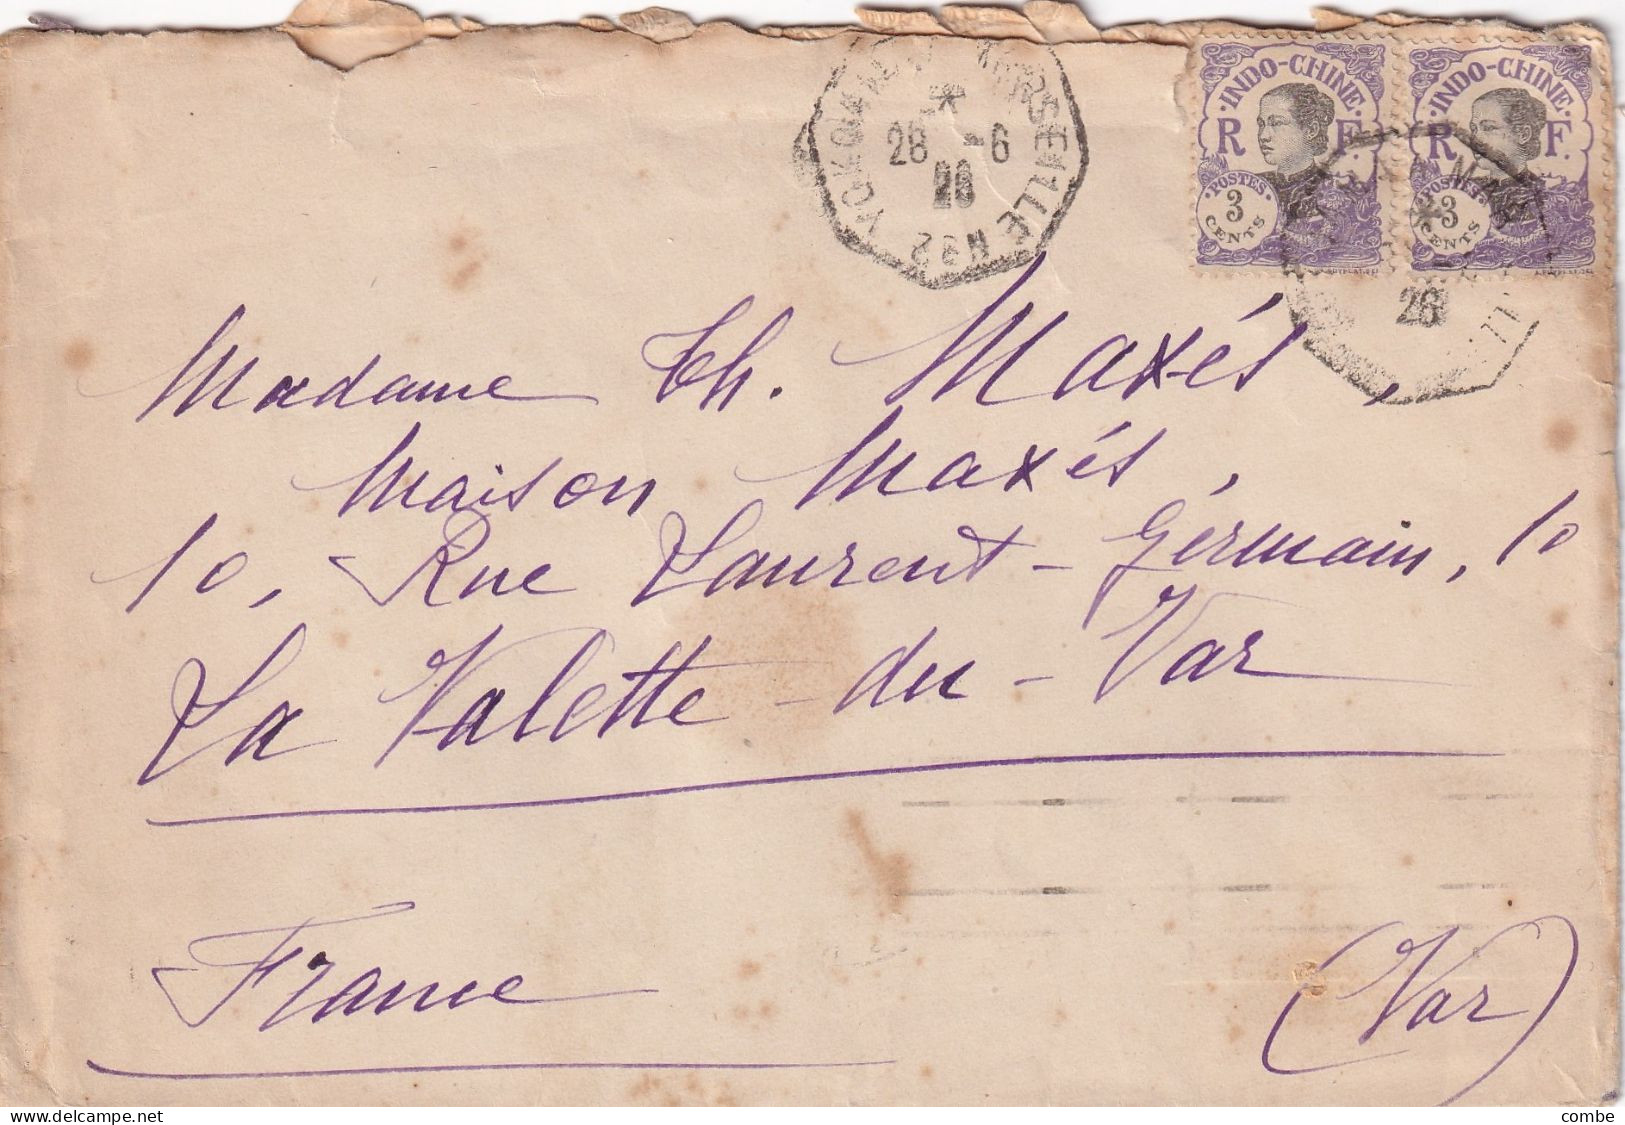 YOKOHAMA MARSEILLE N°2
28 -6
26
·INDO-CHINE·
R F.
·POSTES·
3
CENTS
·INDO-CHINE·
R F.
·POSTES·
3
CENTS
26
Madame Th. Maxés,
Maison Maxés,
10, Rue Laurent-Germain, 10
La Valette-du-Var
France
(Var)
www.delcampe.net
combe